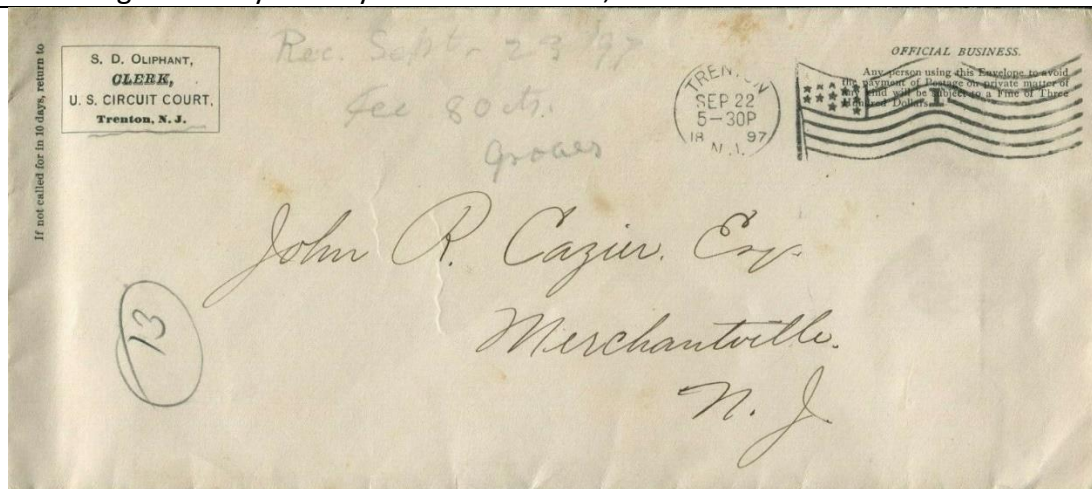 If not called for in 10 days, return to
S. D. OLIPHANT,
CLERK,
U. S. CIRCUIT COURT,
Trenton, N. J.
Rec. Sept. 23 '97
Fee 80 cts.
Groves
TRENTON
SEP 22
5-30P
18 97
N.J.
OFFICIAL BUSINESS.
Any person using this Envelope to avoid
the payment of Postage on private matter of
any kind will be subject to a Fine of Three
Hundred Dollars.
1
John R. Cazier. Esq.
Merchantville.
N. J.
13